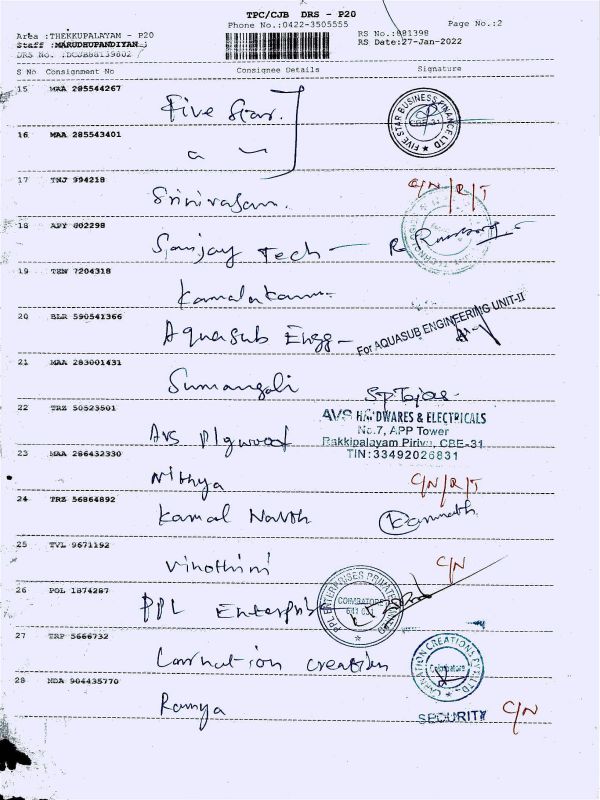 TPC/CJB DRS - P20
Phone No.:0422-3505555
Page No.:2
Area :THEKKUPALAYAM - P20
Staff :MARUDHUPANDIYAN
DRS No. :DCJB88139802
RS No.:881398
RS Date:27-Jan-2022
S No Consignment No Consignee Details Signature
15 MAA 285544267
Five Star.
FIVE STAR BUSINESS FINANCE LTD
CBE-31
16 MAA 285543401
17 TNJ 994218
Srinivasan.
C/N/R/T
18 APY 002298
Sanjay Tech
R
19 TEN 7204318
20 BLR 590541366
Aquasub Engg
For AQUASUB ENGINEERING UNIT-II
21 MAA 283001431
Sumangali
22 TRZ 50523501
AVS Plywood
AVS HARDWARES & ELECTRICALS
No.7, APP Tower
Rakkipalayam Pirivu, CBE-31
TIN:33492026831
23 MAA 286432330
Nithya
C/N/R/T
24 TRZ 56864892
Kamal Nath
25 TVL 9671192
Vinothini
C/N
26 POL 1874287
PPL Enterprise
PPL ENTERPRISES PRIVATE LIMITED
COIMBATORE
641 031
27 TRP 5666732
Carnation Creation
CARNATION CREATIONS PVT. LTD.
Coimbatore
28 MDA 904435770
Ramya
SECURITY
C/N